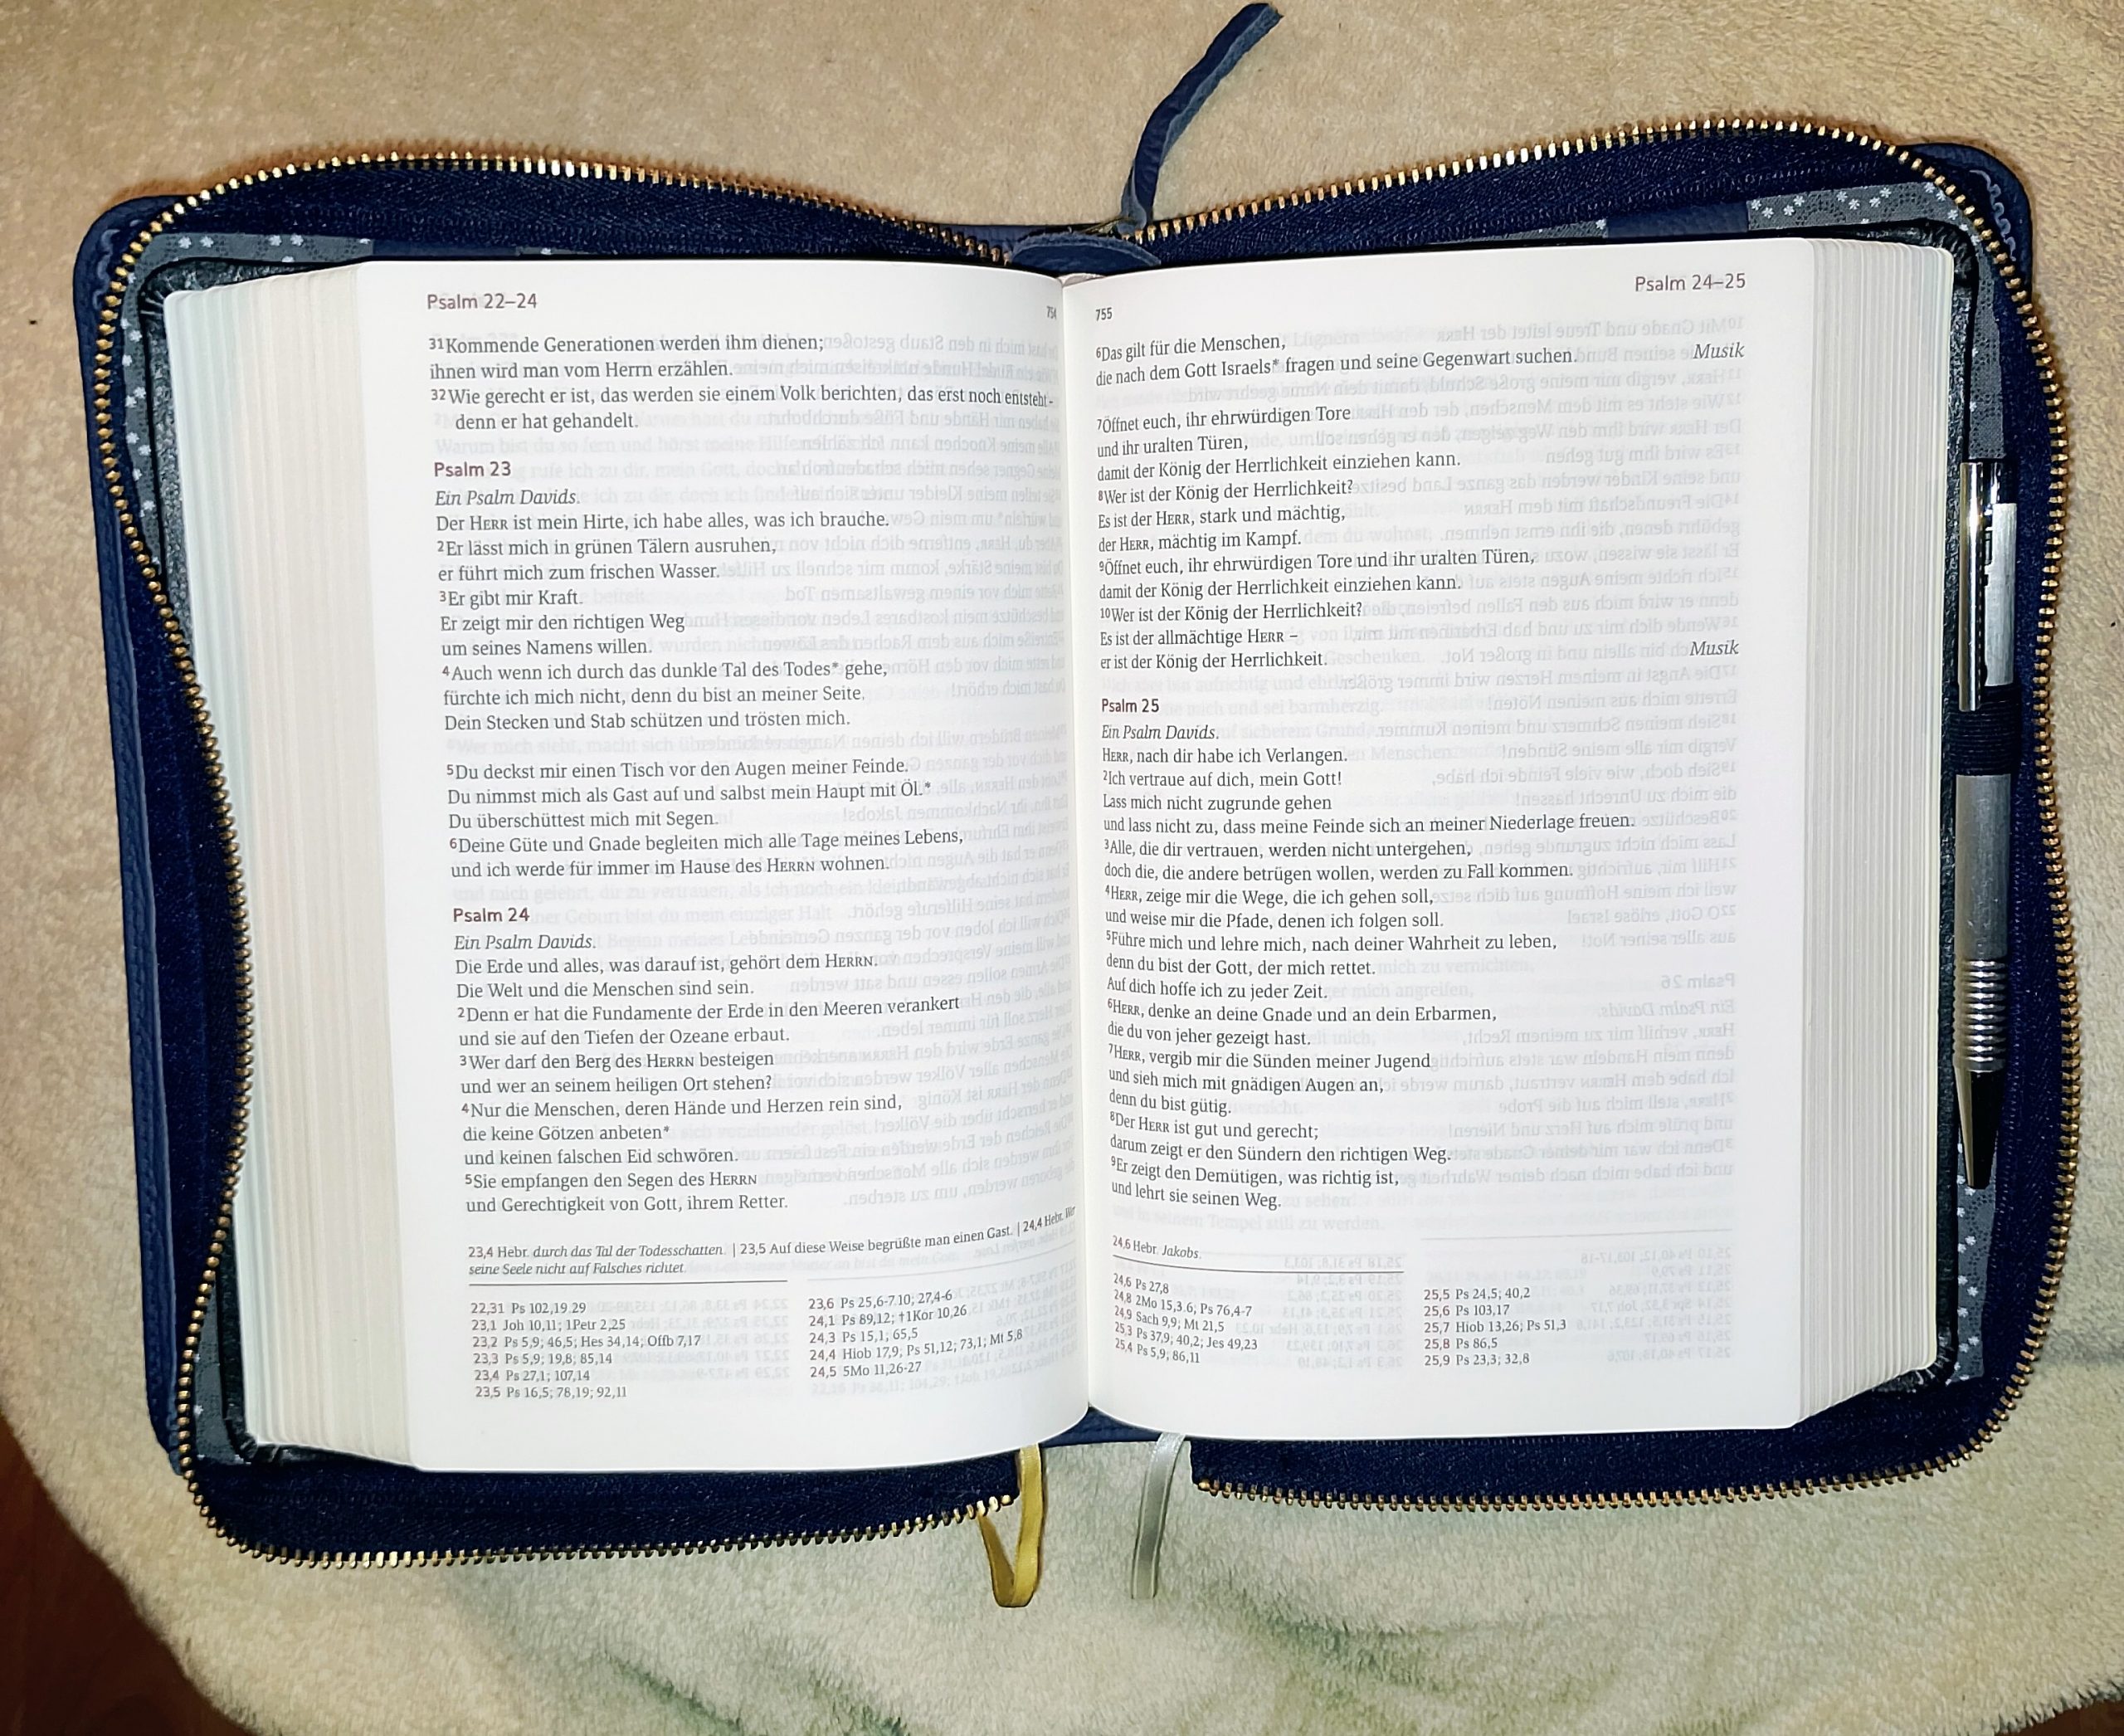 Psalm 22–24
754
31Kommende Generationen werden ihm dienen;
ihnen wird man vom Herrn erzählen.
32Wie gerecht er ist, das werden sie einem Volk berichten, das erst noch entsteht -
denn er hat gehandelt.
Psalm 23
Ein Psalm Davids.
Der HERR ist mein Hirte, ich habe alles, was ich brauche.
2Er lässt mich in grünen Tälern ausruhen,
er führt mich zum frischen Wasser.
3Er gibt mir Kraft.
Er zeigt mir den richtigen Weg
um seines Namens willen.
4Auch wenn ich durch das dunkle Tal des Todes* gehe,
fürchte ich mich nicht, denn du bist an meiner Seite.
Dein Stecken und Stab schützen und trösten mich.
5Du deckst mir einen Tisch vor den Augen meiner Feinde.
Du nimmst mich als Gast auf und salbst mein Haupt mit Öl.*
Du überschüttest mich mit Segen.
6Deine Güte und Gnade begleiten mich alle Tage meines Lebens,
und ich werde für immer im Hause des HERRN wohnen.
Psalm 24
Ein Psalm Davids.
Die Erde und alles, was darauf ist, gehört dem HERRN.
Die Welt und die Menschen sind sein.
2Denn er hat die Fundamente der Erde in den Meeren verankert
und sie auf den Tiefen der Ozeane erbaut.
3Wer darf den Berg des HERRN besteigen
und wer an seinem heiligen Ort stehen?
4Nur die Menschen, deren Hände und Herzen rein sind,
die keine Götzen anbeten*
und keinen falschen Eid schwören.
5Sie empfangen den Segen des HERRN
und Gerechtigkeit von Gott, ihrem Retter.
23,4 Hebr. durch das Tal der Todesschatten. | 23,5 Auf diese Weise begrüßte man einen Gast. | 24,4 Hebr. Wer
seine Seele nicht auf Falsches richtet.
22,31 Ps 102,19.29
23,1 Joh 10,11; 1Petr 2,25
23,2 Ps 5,9; 46,5; Hes 34,14; Offb 7,17
23,3 Ps 5,9; 19,8; 85,14
23,4 Ps 27,1; 107,14
23,5 Ps 16,5; 78,19; 92,11
23,6 Ps 25,6-7.10; 27,4-6
24,1 Ps 89,12; †1Kor 10,26
24,3 Ps 15,1; 65,5
24,4 Hiob 17,9; Ps 51,12; 73,1; Mt 5,8
24,5 5Mo 11,26-27
Psalm 24–25
755
6Das gilt für die Menschen,
die nach dem Gott Israels* fragen und seine Gegenwart suchen. Musik
7Öffnet euch, ihr ehrwürdigen Tore
und ihr uralten Türen,
damit der König der Herrlichkeit einziehen kann.
8Wer ist der König der Herrlichkeit?
Es ist der HERR, stark und mächtig,
der HERR, mächtig im Kampf.
9Öffnet euch, ihr ehrwürdigen Tore und ihr uralten Türen,
damit der König der Herrlichkeit einziehen kann.
10Wer ist der König der Herrlichkeit?
Es ist der allmächtige HERR –
er ist der König der Herrlichkeit. Musik
Psalm 25
Ein Psalm Davids.
HERR, nach dir habe ich Verlangen.
2Ich vertraue auf dich, mein Gott!
Lass mich nicht zugrunde gehen
und lass nicht zu, dass meine Feinde sich an meiner Niederlage freuen.
3Alle, die dir vertrauen, werden nicht untergehen,
doch die, die andere betrügen wollen, werden zu Fall kommen.
4HERR, zeige mir die Wege, die ich gehen soll,
und weise mir die Pfade, denen ich folgen soll.
5Führe mich und lehre mich, nach deiner Wahrheit zu leben,
denn du bist der Gott, der mich rettet.
Auf dich hoffe ich zu jeder Zeit.
6HERR, denke an deine Gnade und an dein Erbarmen,
die du von jeher gezeigt hast.
7HERR, vergib mir die Sünden meiner Jugend
und sieh mich mit gnädigen Augen an,
denn du bist gütig.
8Der HERR ist gut und gerecht;
darum zeigt er den Sündern den richtigen Weg.
9Er zeigt den Demütigen, was richtig ist,
und lehrt sie seinen Weg.
24,6 Hebr. Jakobs.
24,6 Ps 27,8
24,8 2Mo 15,3.6; Ps 76,4-7
24,9 Sach 9,9; Mt 21,5
25,3 Ps 37,9; 40,2; Jes 49,23
25,4 Ps 5,9; 86,11
25,5 Ps 24,5; 40,2
25,6 Ps 103,17
25,7 Hiob 13,26; Ps 51,3
25,8 Ps 86,5
25,9 Ps 23,3; 32,8